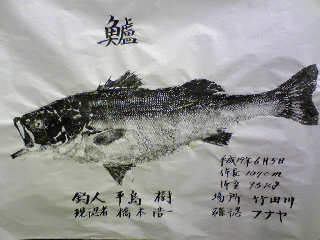 鱸
平成17年6月5日
体長 104cm
体重 9.5kg
釣人 平島 樹
場所 竹田川
現認者 橋本 浩一
確認 フナヤ